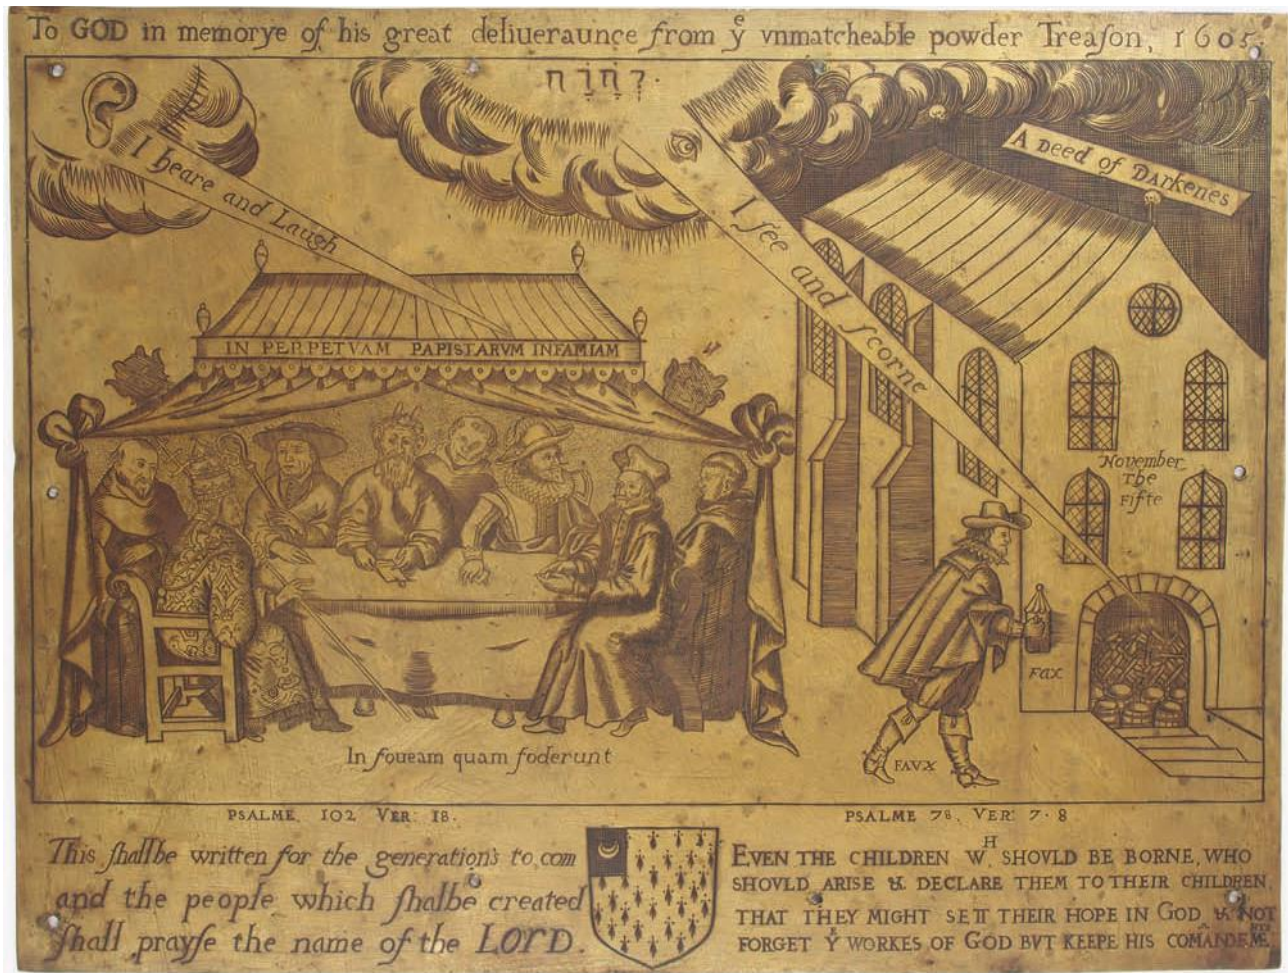 To GOD in memorye of his great deliueraunce from yͤ vnmatcheable powder Treaſon, 1605.
I heare and Laugh
I ſee and ſcorne
A Deed of DARKENES
IN PERPETVAM PAPISTARVM INFAMIAM
November
The
Fifte
FAX
FAVX
In foueam quam foderunt
PSALME. 102 VER: 18.
This ſhalbe written for the generations to com
and the people which ſhalbe created
ſhall prayſe the name of the LORD.
PSALME 78. VER: 7. 8
EVEN THE CHILDREN Wᴴ SHOVLD BE BORNE, WHO
SHOVLD ARISE & DECLARE THEM TO THEIR CHILDREN,
THAT THEY MIGHT SETT THEIR HOPE IN GOD & NOT
FORGET Yᴱ WORKES OF GOD BVT KEEPE HIS COMANDEMᴺᵀˢ